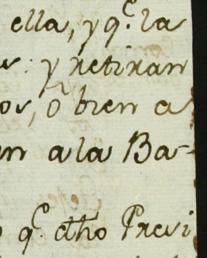 ella, y q.e la
s: y retiran
os, ô bien a
n a la Ba-
q.e dho Presi